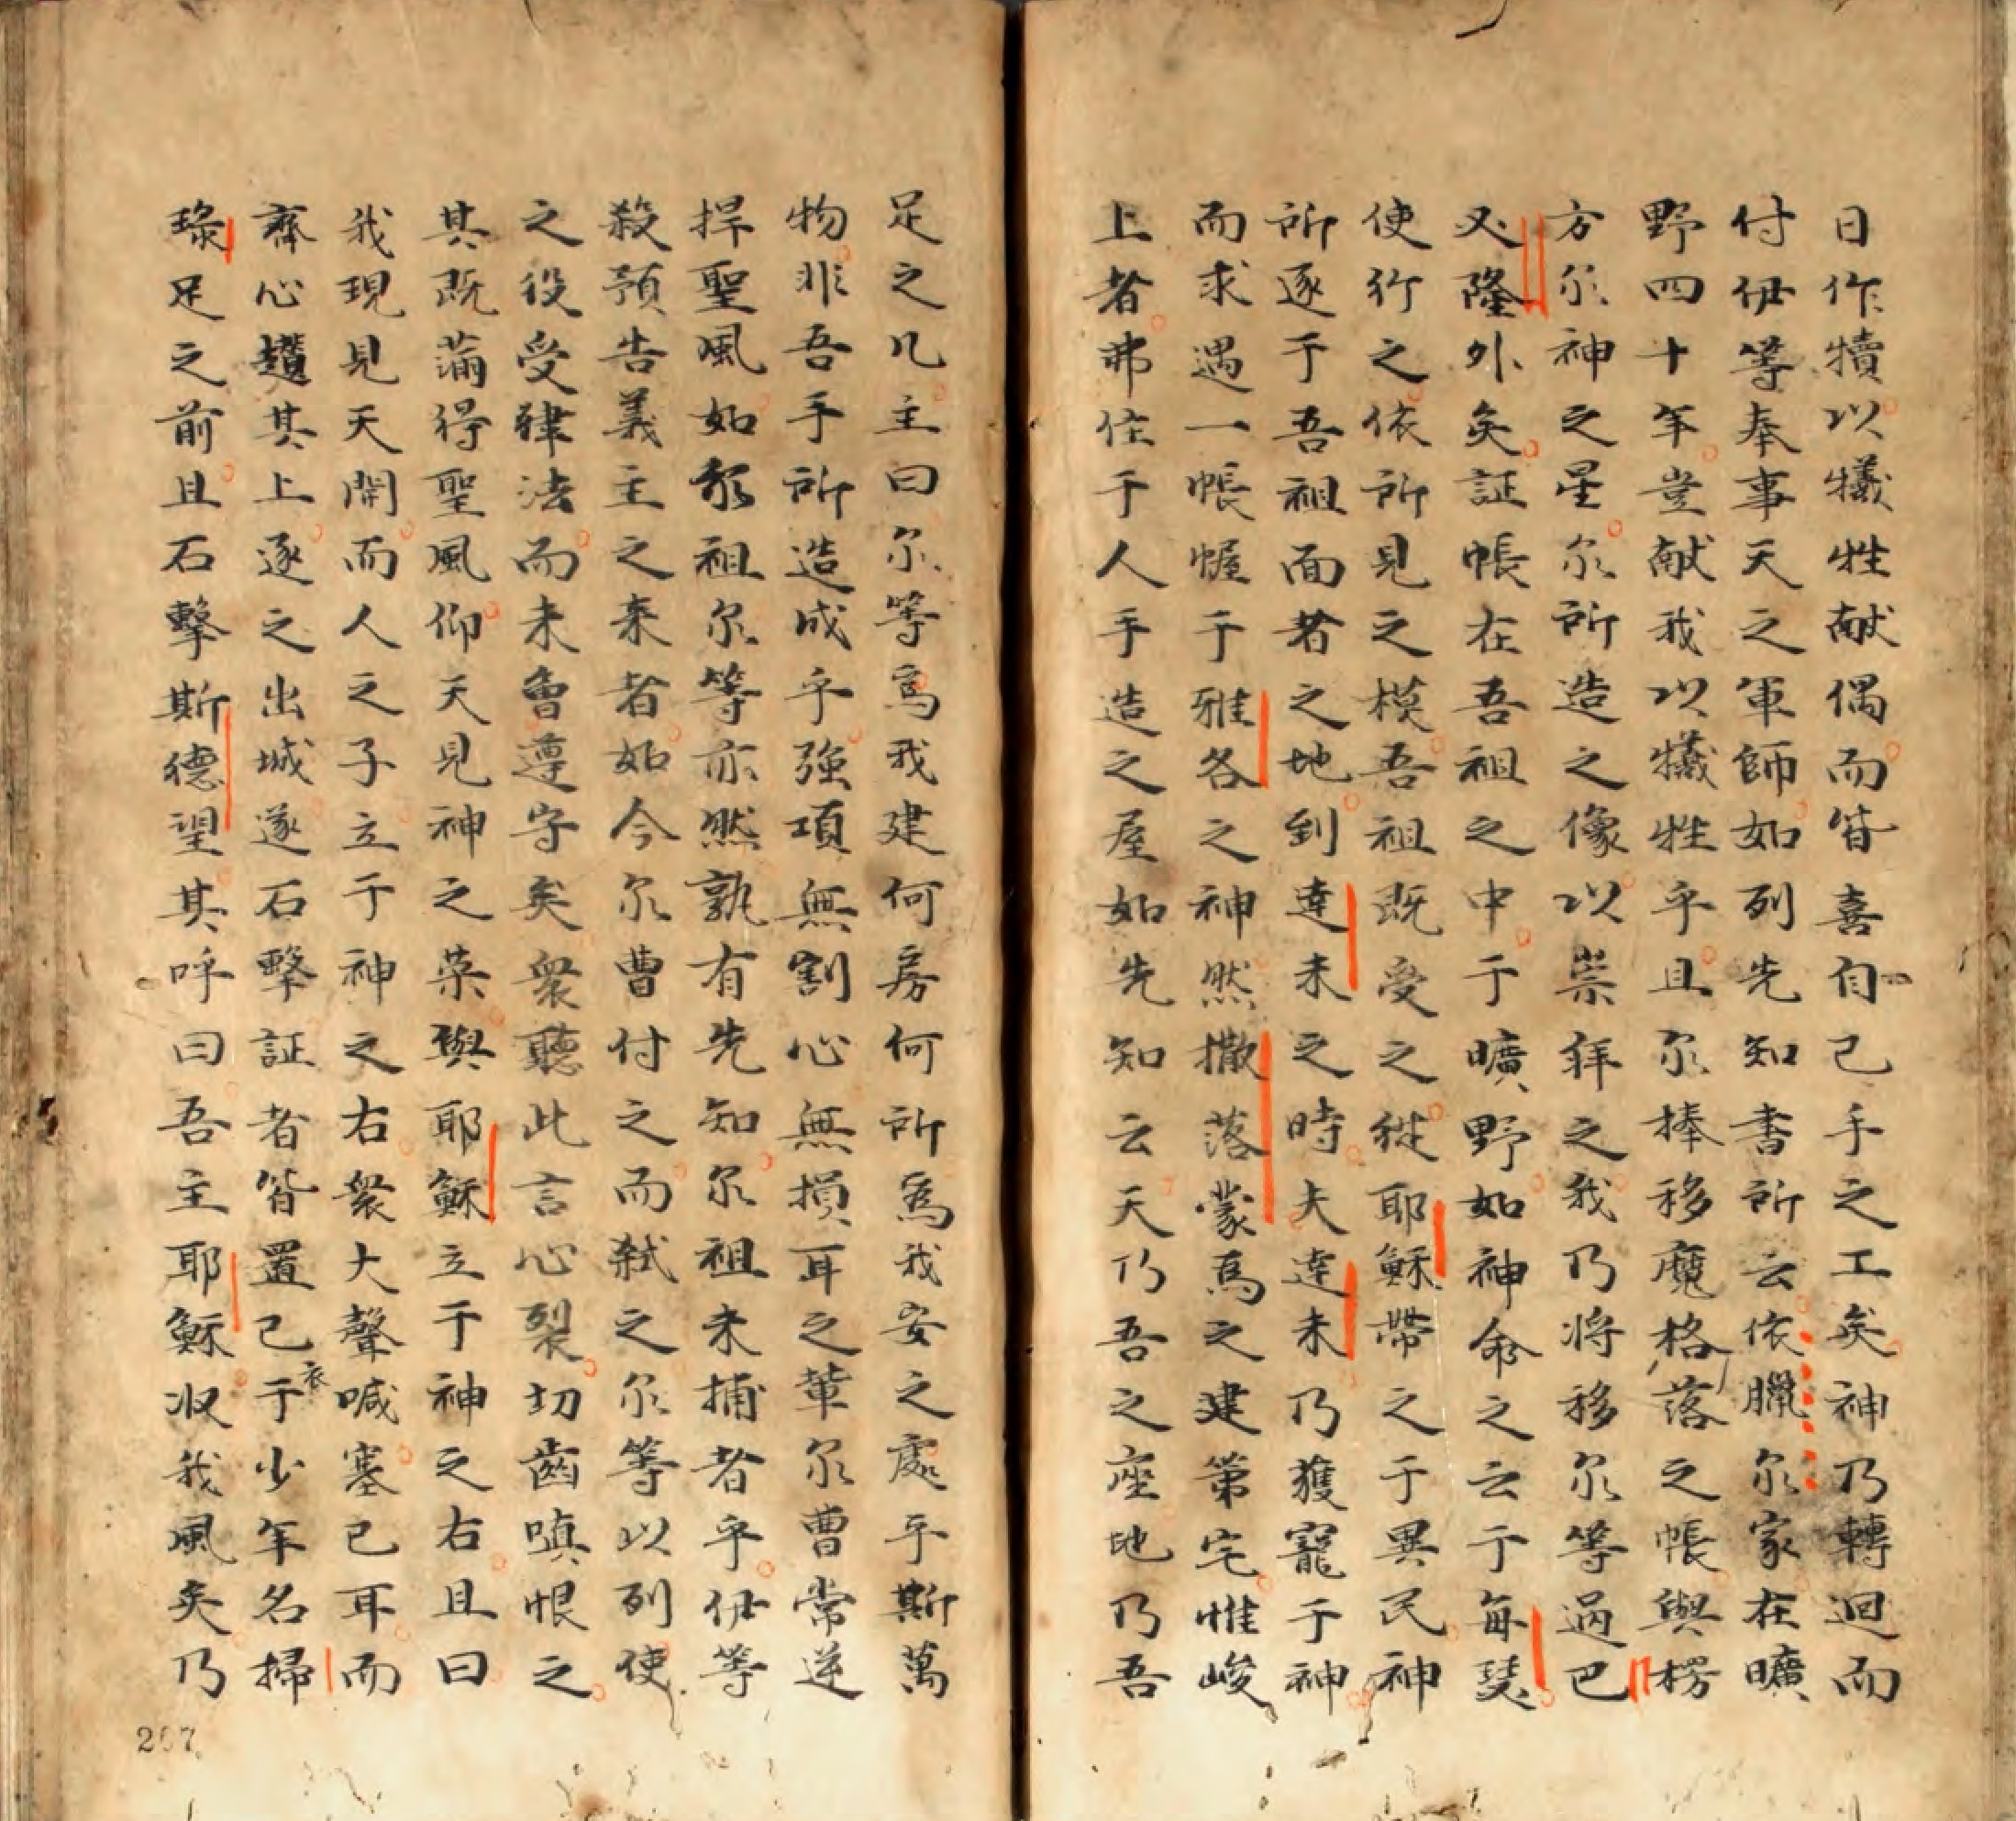 日作犢以犧牲献偶而皆喜自己手之工矣神乃轉迴而
付伊等奉事天之軍師如列先知書所云依臘尔家在曠
野四十年豈献我以犧牲乎且尔捧移魔格落之帳與楞
方尔神之星尔所造之像以崇拜之我乃将移尔等過巴
必隆外矣証帳在吾祖之中于曠野如神命之云于每瑟
使行之依所見之模吾祖既受之從耶穌帶之于異民神
所逐于吾祖面者之地到達未之時夫達未乃獲寵于神
而求遇一帳幄于雅各之神然撒落蒙為之建第宅惟峻
上者弗住于人手造之屋如先知云天乃吾之座地乃吾
足之几主曰尔等為我建何房何所為我安之處乎斯萬
物非吾手所造成乎強項無割心無損耳之輩尔曹常逆
捍聖風如尔祖尔等亦然孰有先知尔祖未捕者乎伊等
殺預告義主之来者如今尔曹付之而弒之尔等以列使
之役受律法而未曾遵守矣衆聽此言心裂切齒嗔恨之
其既滿得聖風仰天見神之荣與耶穌立于神之右且曰
我現見天開而人之子立于神之右衆大聲喊塞己耳而
齊心趲其上逐之出城遂石擊証者皆置己衣于少年名掃
琭足之前且石擊斯德望其呼曰吾主耶穌收我風矣乃
207